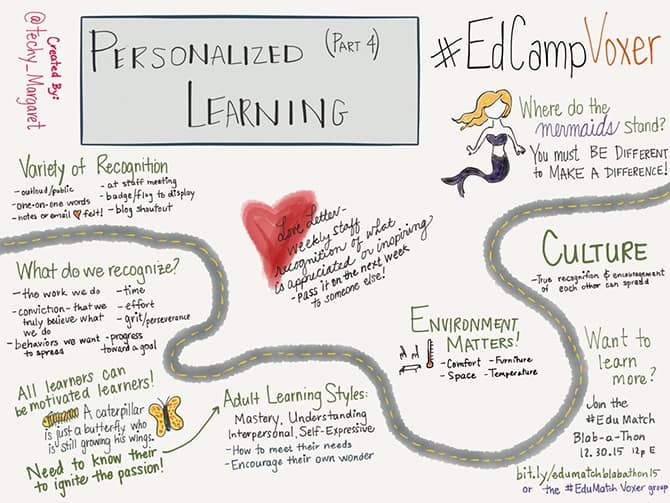 Created By:
@techy_Margaret
PERSONALIZED (PART 4)
LEARNING
#EdCampVoxer
Where do the
mermaids stand?
YOU MUST BE DIFFERENT
TO MAKE A DIFFERENCE!
Variety of Recognition
- outloud/public
- one-on-one words
- notes or email felt!
- at staff meeting
- badge/flag to display
- blog shoutout
Love Letter-
weekly staff
recognition of what
is appreciated or inspiring
- pass it on the next week
to someone else!
CULTURE
- True recognition & encouragement
of each other can spread
What do we recognize?
- the work we do
- conviction - that we
truly believe what
we do
- behaviors we want
to spread
- time
- effort
- grit/perseverance
- progress
toward a goal
ENVIRONMENT
MATTERS!
- Comfort
- Space
- Furniture
- Temperature
All learners can
be motivated learners!
A caterpillar
is just a butterfly who
is still growing his wings.
Need to know their
to ignite the passion!
Adult Learning Styles:
Mastery, Understanding
Interpersonal, Self-Expressive
- How to meet their needs
- Encourage their own wonder
Want to
learn
more?
Join the
#EduMatch
Blab-a-Thon
12.30.15 12p E
bit.ly/edumatchblabathon15
or the #EduMatch Voxer group